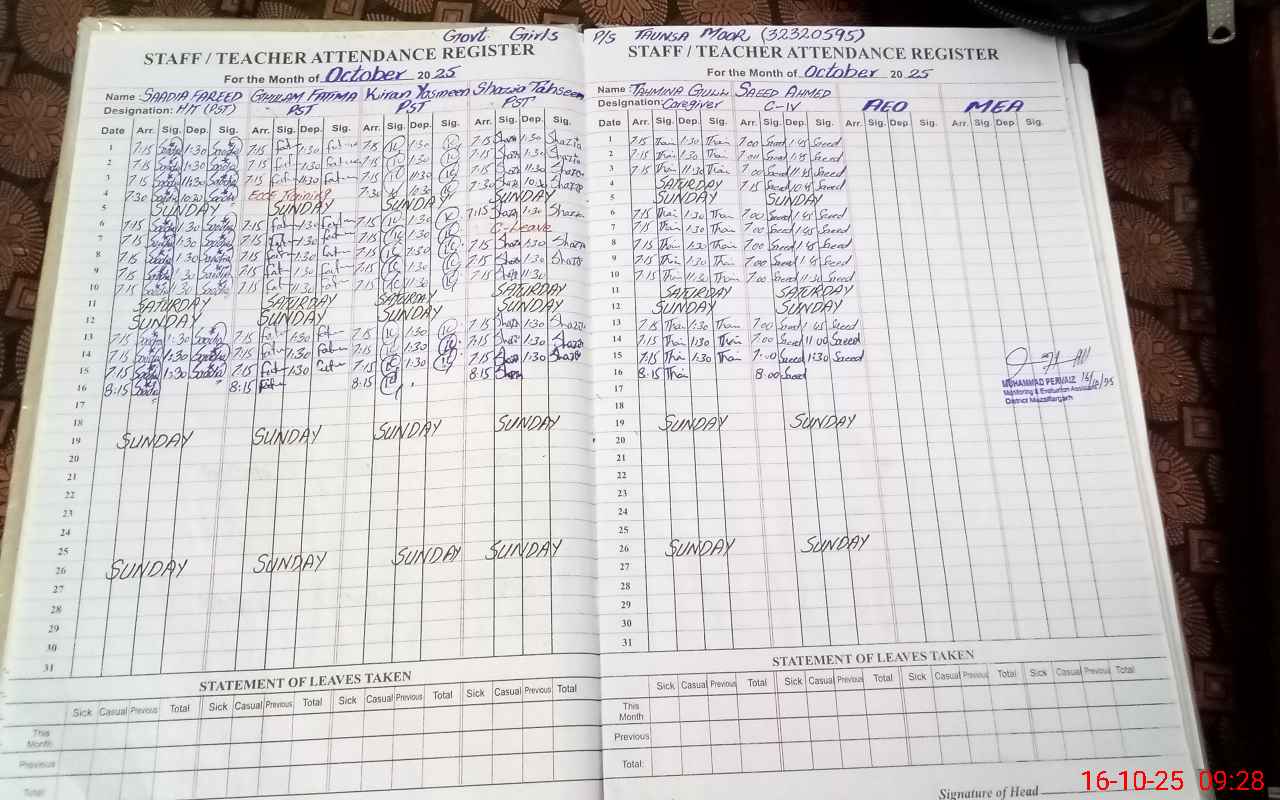 Govt. Girls P/S TAUNSA MOOR (32320595)
STAFF / TEACHER ATTENDANCE REGISTER
For the Month of October 2025
Name: SAADIA FAREED GHULAM FATIMA Kiran Yasmeen Shazia Tahseen
Designation: H/T (PST) PST PST PST
Date Arr. Sig. Dep. Sig. Arr. Sig. Dep. Sig. Arr. Sig. Dep. Sig. Arr. Sig. Dep. Sig.
1 7:15 1:30 7:15 1:30 7:15 1:30 7:15 1:30 Shazia
2 7:15 1:30 7:15 1:30 7:15 1:30 7:15 1:30 Shazia
3 7:15 11:30 7:15 11:30 7:15 11:30 7:15 11:30
4 7:30 10:30 ECCE Training 7:30 10:30 7:30 10:30
5 SUNDAY SUNDAY SUNDAY SUNDAY
6 7:15 1:30 7:15 1:30 7:15 1:30 7:15 1:30
7 7:15 1:30 7:15 1:30 7:15 1:30 C-Leave
8 7:15 1:30 7:15 1:30 7:15 1:30 7:15 1:30
9 7:15 1:30 7:15 1:30 7:15 1:30 7:15 1:30
10 7:15 11:30 7:15 11:30 7:15 11:30 7:15 11:30
11 SATURDAY SATURDAY SATURDAY SATURDAY
12 SUNDAY SUNDAY SUNDAY SUNDAY
13 7:15 1:30 7:15 1:30 7:15 1:30 7:15 1:30
14 7:15 1:30 7:15 1:30 7:15 1:30 7:15 1:30
15 7:15 1:30 7:15 1:30 7:15 1:30 7:15 1:30
16 8:15 8:15 8:15 8:15
17
18
19 SUNDAY SUNDAY SUNDAY SUNDAY
20
21
22
23
24
25
26 SUNDAY SUNDAY SUNDAY SUNDAY
27
28
29
30
31
STATEMENT OF LEAVES TAKEN
Sick Casual Previous Total Sick Casual Previous Total Sick Casual Previous Total Sick Casual Previous Total
This Month
Previous
Total
STAFF / TEACHER ATTENDANCE REGISTER
For the Month of October 2025
Name: TAHMINA GULL SAEED AHMED
Designation: Caregiver C-IV AEO MEA
Date Arr. Sig. Dep. Sig. Arr. Sig. Dep. Sig. Arr. Sig. Dep. Sig. Arr. Sig. Dep. Sig.
1 7:15 1:30 7:00 Saeed 1:45 Saeed
2 7:15 1:30 7:00 Saeed 1:45 Saeed
3 7:15 11:30 7:00 Saeed 11:45 Saeed
4 SATURDAY 7:15 Saeed 10:45 Saeed
5 SUNDAY SUNDAY
6 7:15 1:30 7:00 Saeed 1:45 Saeed
7 7:15 1:30 7:00 Saeed 1:45 Saeed
8 7:15 1:30 7:00 Saeed 1:45 Saeed
9 7:15 1:30 7:00 Saeed 1:45 Saeed
10 7:15 11:30 7:00 Saeed 11:30 Saeed
11 SATURDAY SATURDAY
12 SUNDAY SUNDAY
13 7:15 1:30 7:00 Saeed 1:45 Saeed
14 7:15 1:30 7:00 Saeed 11:00 Saeed
15 7:15 1:30 7:00 Saeed 1:30 Saeed
16 8:15 8:00 Saeed
MUHAMMAD PERVAIZ
Monitoring & Evaluation Assistant
District Muzaffargarh
17
18
19 SUNDAY SUNDAY
20
21
22
23
24
25
26 SUNDAY SUNDAY
27
28
29
30
31
STATEMENT OF LEAVES TAKEN
Sick Casual Previous Total Sick Casual Previous Total Sick Casual Previous Total Sick Casual Previous Total
This Month
Previous
Total:
Signature of Head
16-10-25 09:28